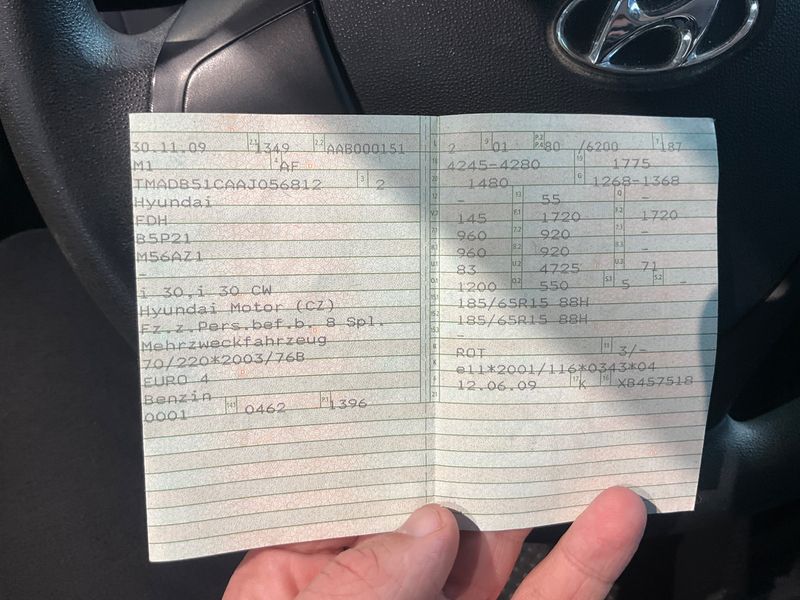 30.11.09 2.1 1349 2.2 AAB000151
M1 4 AF
TMADB51CAAJ056812 3 2
Hyundai
FDH
B5P21
M56AZ1
-
i 30,i 30 CW
Hyundai Motor (CZ)
Fz.z.Pers.bef.b. 8 Spl.
Mehrzweckfahrzeug
70/220*2003/76B
EURO 4
Benzin
0001 14.1 0462 P.1 1396
2 9 01 P.2 P.4 80 /6200 T 187
4245-4280 19 1775
1480 G 1268-1368
- 13 55 Q -
145 F.1 1720 F.2 1720
960 7.2 920 7.3 -
960 8.2 920 8.3 -
83 U.2 4725 U.3 71
1200 O.2 550 S.1 5 S.2 -
185/65R15 88H
185/65R15 88H
-
ROT 11 3/-
e11*2001/116*0343*04
12.06.09 17 K 16 XB457518